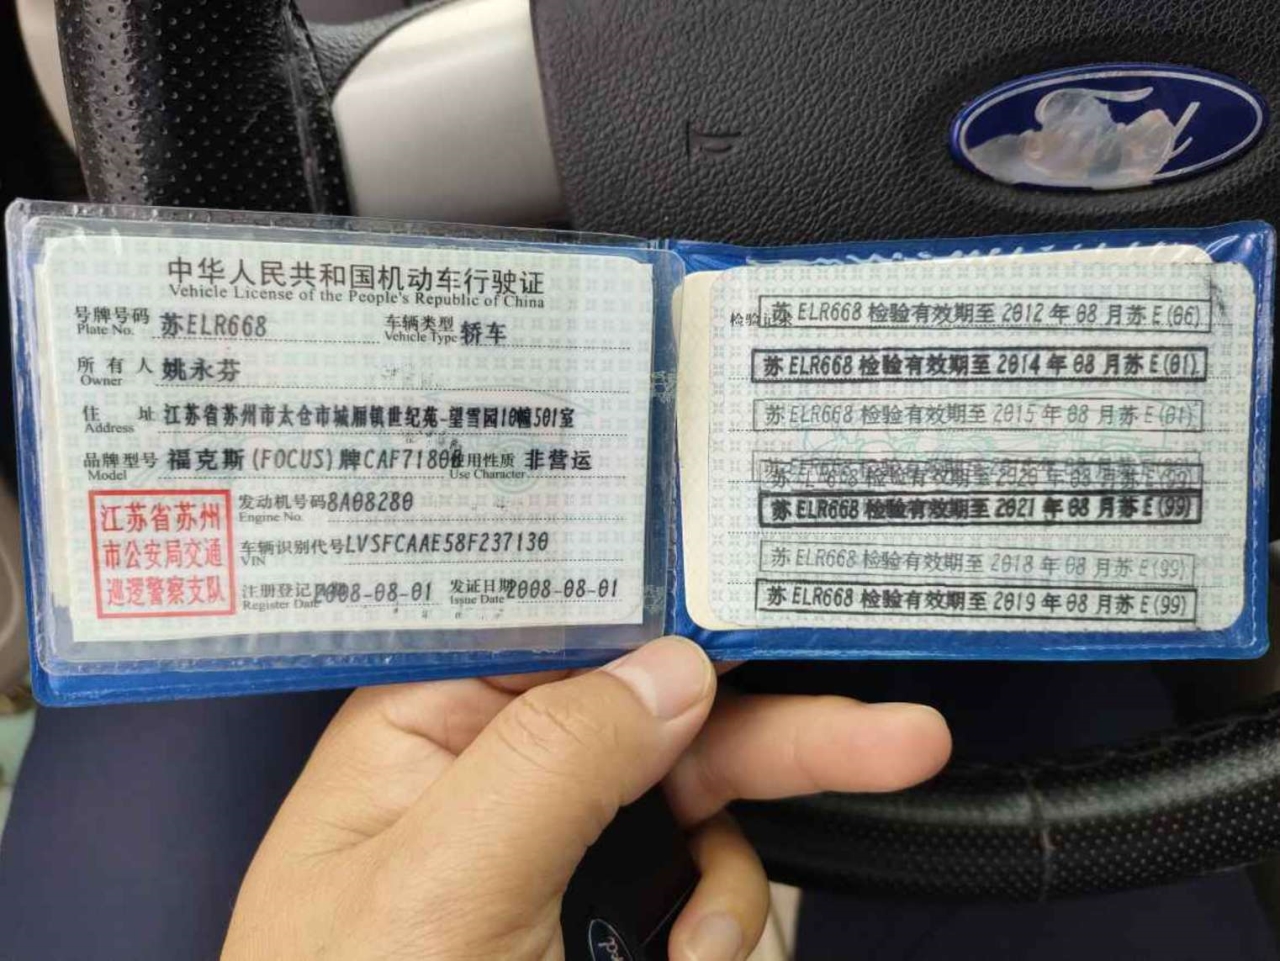 中华人民共和国机动车行驶证
Vehicle License of the People's Republic of China
号牌号码 苏ELR668 车辆类型 轿车
Plate No. Vehicle Type
所有人 姚永芬
Owner
住址 江苏省苏州市太仓市城厢镇世纪苑-望雪园10幢501室
Address
品牌型号 福克斯(FOCUS)牌CAF7180 使用性质 非营运
Model Use Character
江苏省苏州
市公安局交通
巡逻警察支队
发动机号码 8A08280
Engine No.
车辆识别代号 LVSFCAAE58F237130
VIN
注册登记 2008-08-01 发证日期 2008-08-01
Register Date Issue Date
检验记录
苏ELR668 检验有效期至 2012 年 08 月苏E(06)
苏ELR668 检验有效期至 2014 年 08 月苏E(01)
苏ELR668 检验有效期至 2015 年 08 月苏E(01)
苏ELR668 检验有效期至 2021 年 08 月苏E(99)
苏ELR668 检验有效期至 2018 年 08 月苏E(99)
苏ELR668 检验有效期至 2019 年 08 月苏E(99)